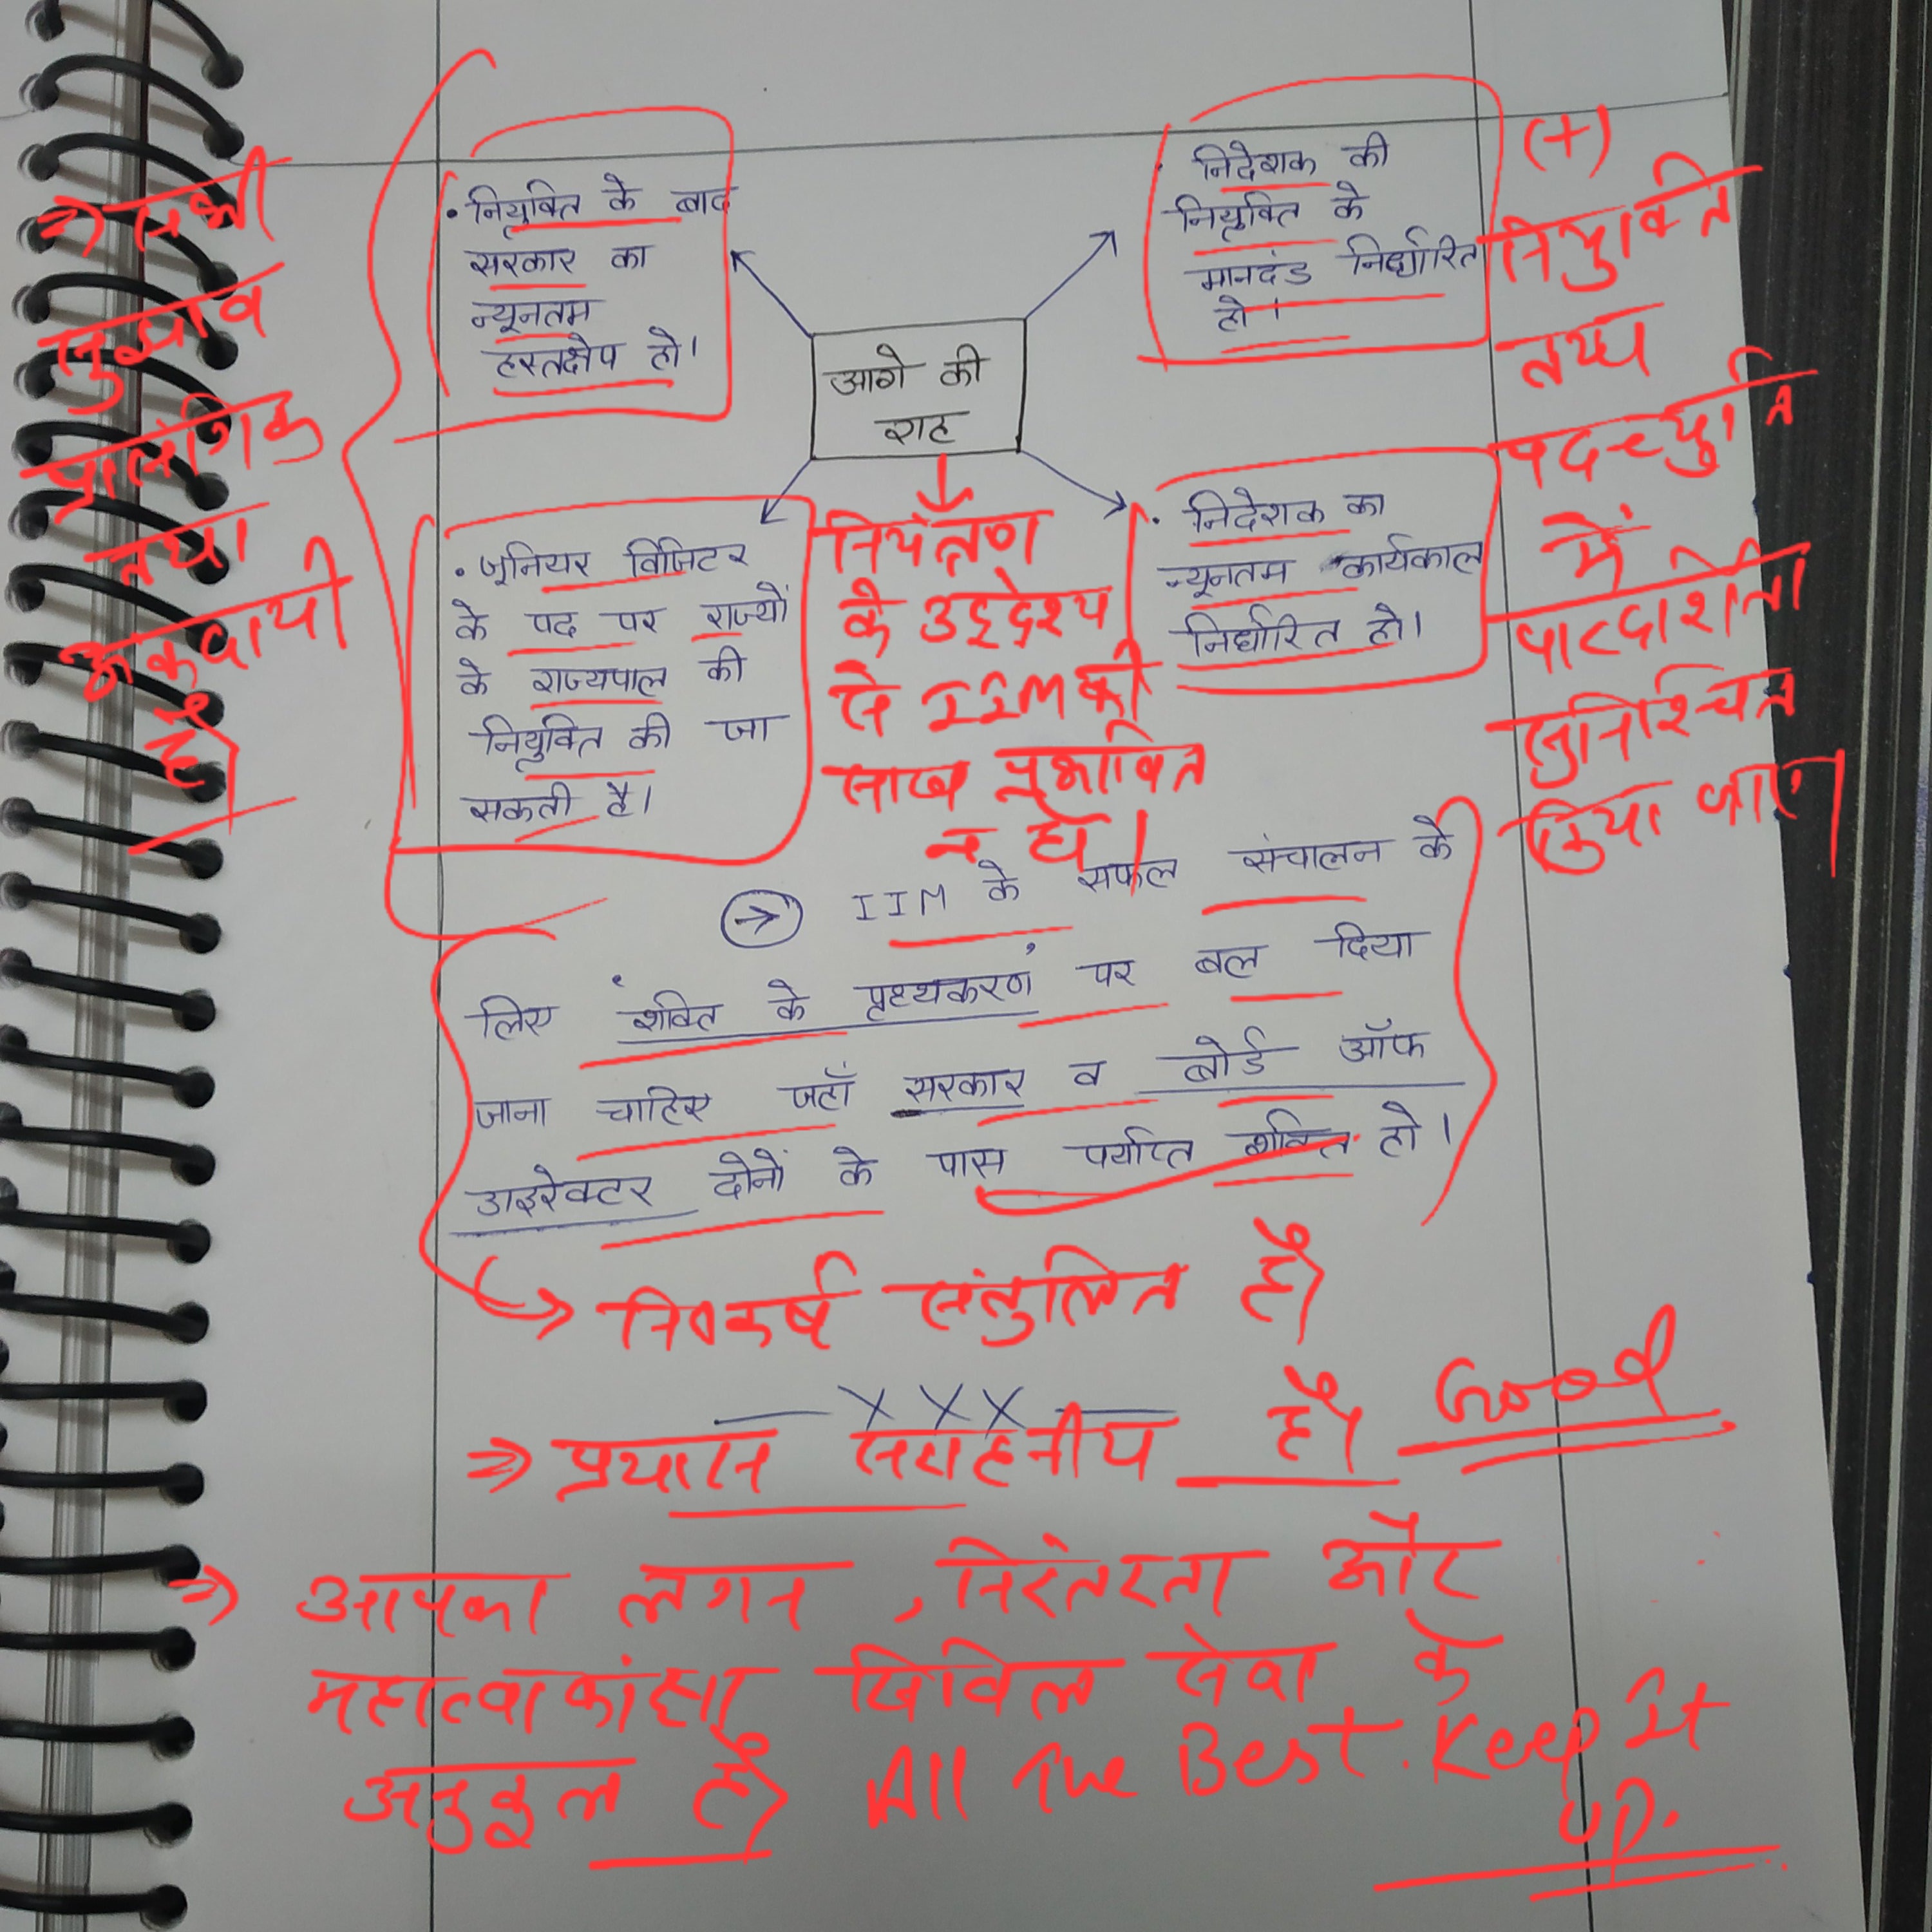 • नियुक्ति के बाद
सरकार का
न्यूनतम
हस्तक्षेप हो।
निदेशक की
नियुक्ति के
मानदंड निर्धारित
हो।
आगे की
राह
• जूनियर विजिटर
के पद पर राज्यों
के राज्यपाल की
नियुक्ति की जा
सकती है।
• निदेशक का
न्यूनतम कार्यकाल
निर्धारित हो।
⇒ सभी
सुझाव
प्रासंगिक
तथा
अंकदायी
है।
नियंत्रण
के उद्देश्य
से IIM की
साख प्रभावित
न हो।
(+)
नियुक्ति
तथा
पदच्युति
में
पारदर्शिता
सुनिश्चित
किया जाए।
→ IIM के सफल संचालन के
लिए 'शक्ति के पृथ्यकरण' पर बल दिया
जाना चाहिए जहाँ सरकार व बोर्ड ऑफ
डाइरेक्टर दोनों के पास पर्याप्त शक्ति हो।
→ निष्कर्ष संतुलित है।
— X X X —
⇒ प्रयास सराहनीय है। Good
⇒ आपका लगन, निरंतरता और
महत्वाकांक्षा सिविल सेवा के
अनुकूल है। All The Best. Keep It
up.